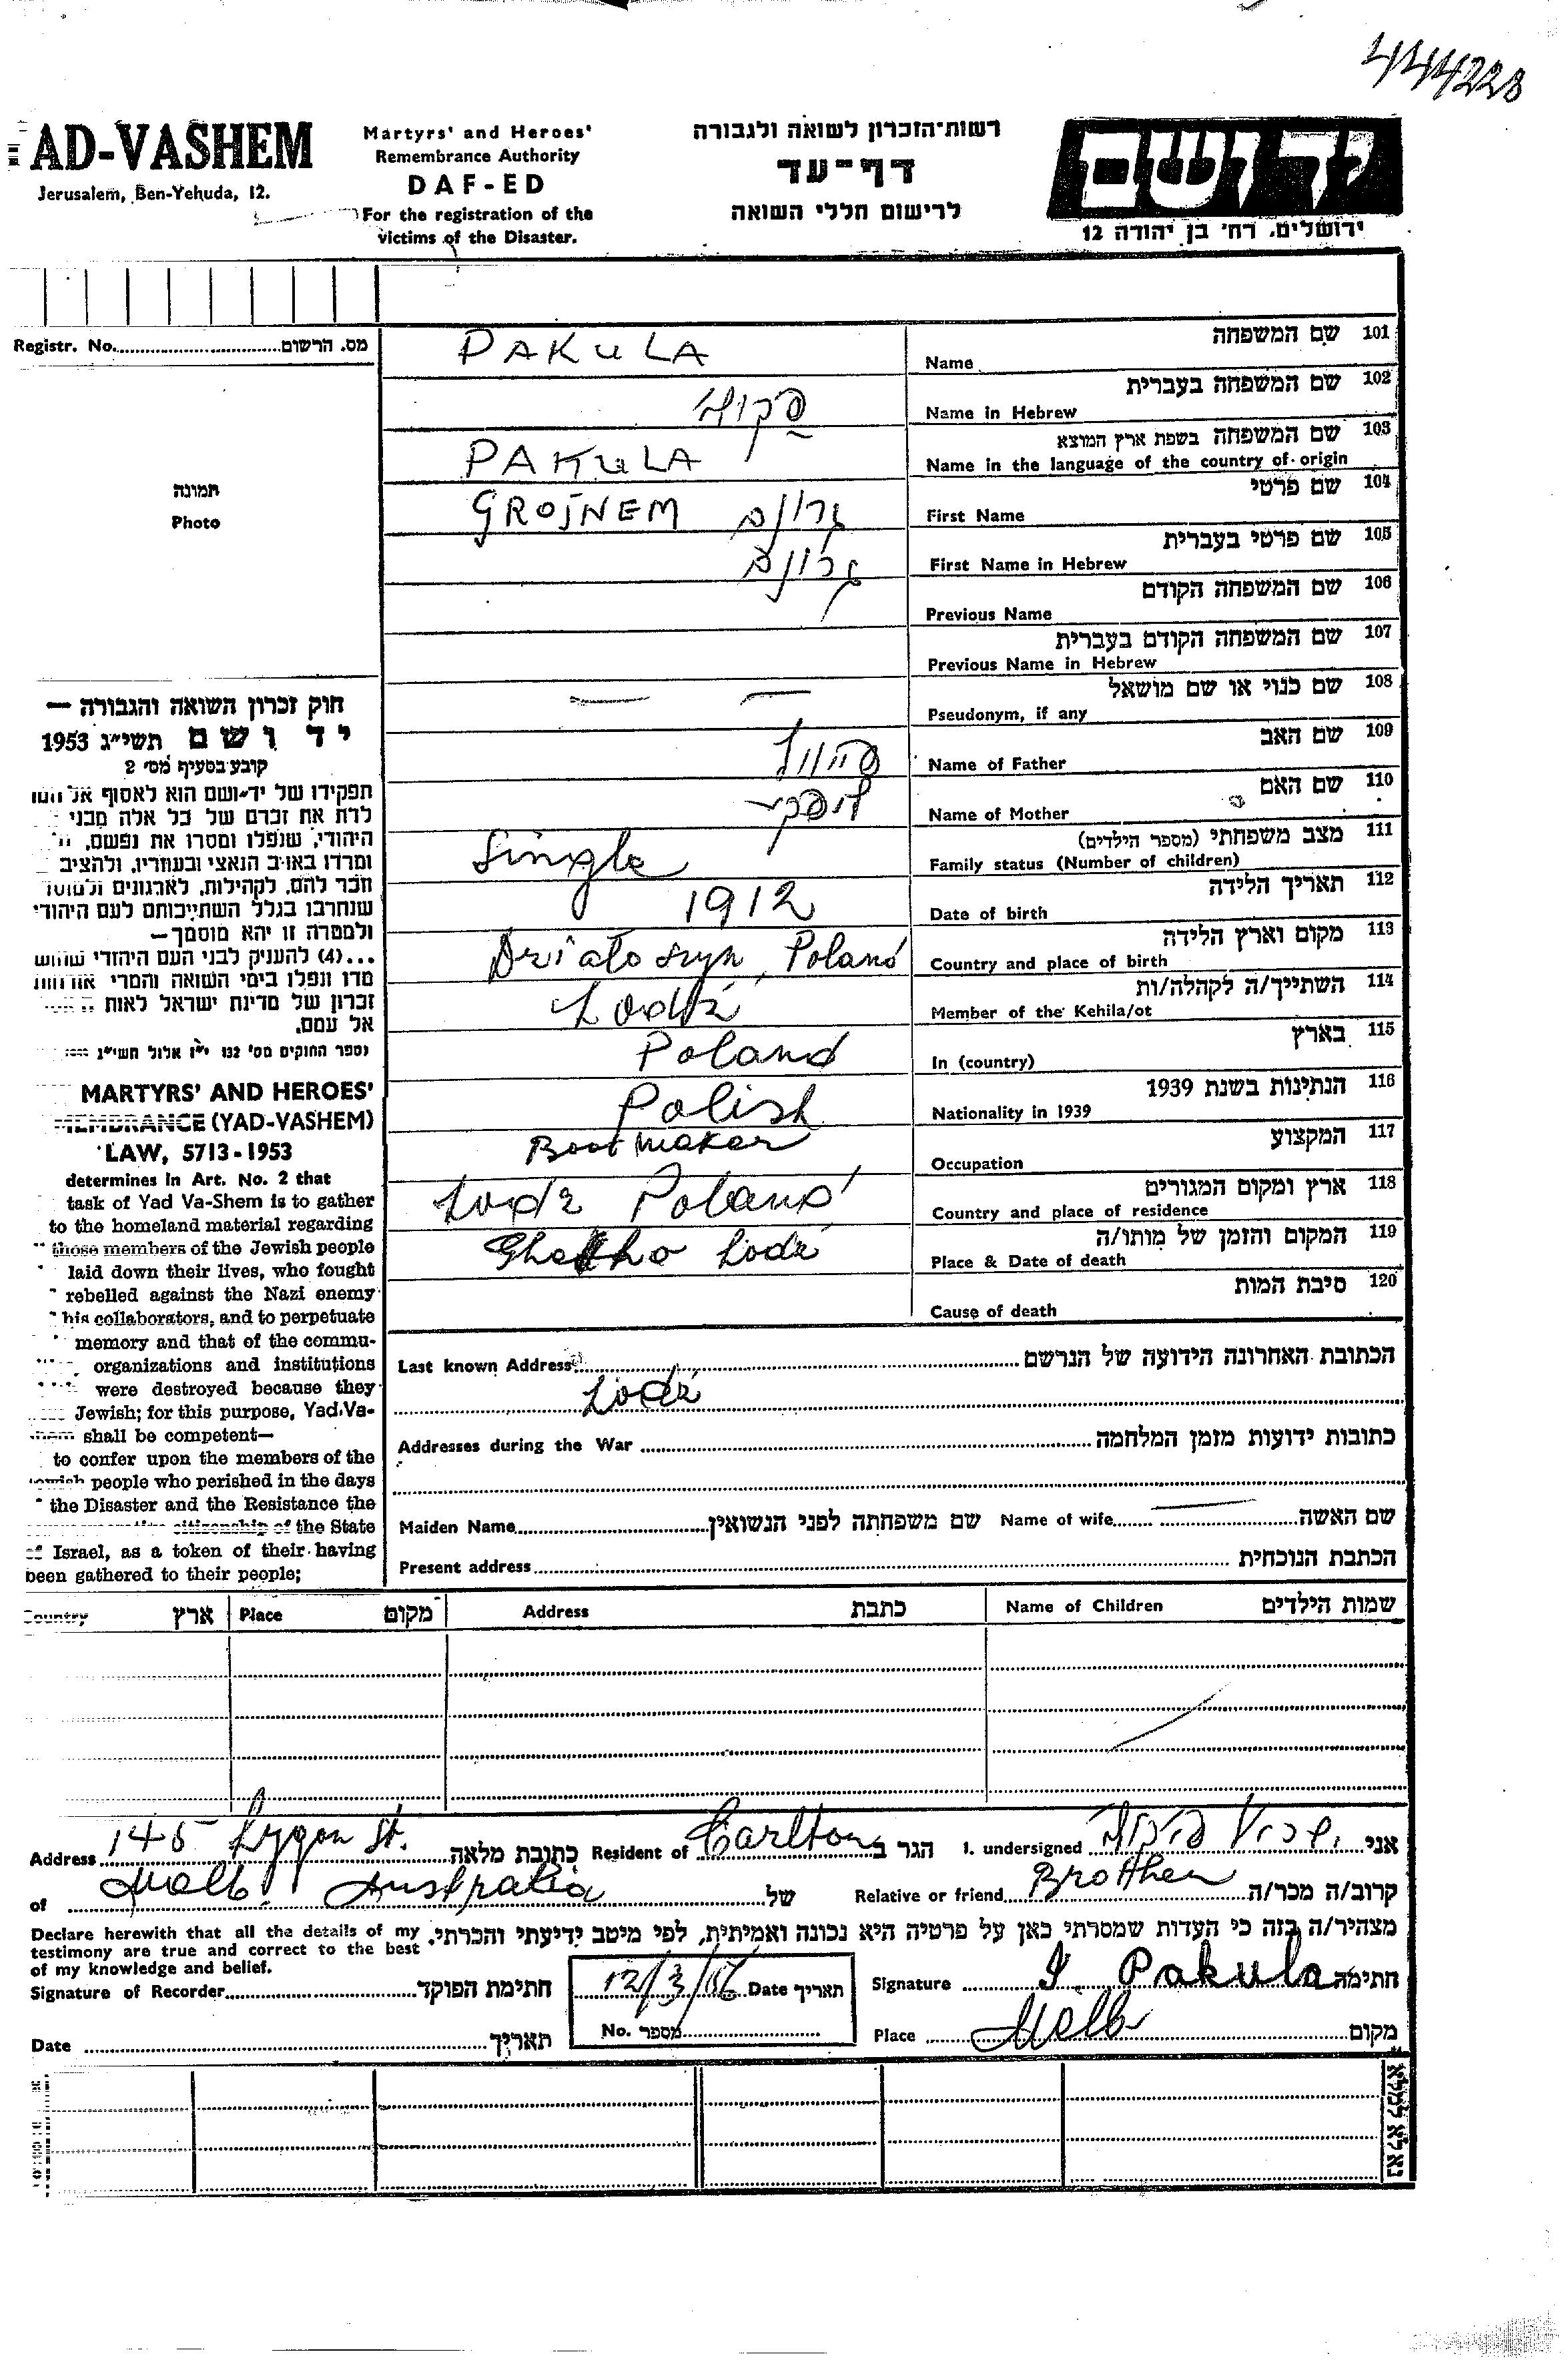 444228
AD-VASHEM
Jerusalem, Ben-Yehuda, 12.
Martyrs' and Heroes'
Remembrance Authority
DAF-ED
For the registration of the
victims of the Disaster.
רשות-הזכרון לשואה ולגבורה
דף-עד
לרישום חללי השואה
יד ושם
ירושלים, רח' בן יהודה 12
Registr. No. מס. הרשום
תמונה
Photo
PAKULA Name שם המשפחה 101
Name in Hebrew שם המשפחה בעברית 102
PAKULA Name in the language of the country of origin שם המשפחה בשפת ארץ המוצא 103
GROJNEM גרונם First Name שם פרטי 104
גרונם First Name in Hebrew שם פרטי בעברית 105
Previous Name שם המשפחה הקודם 106
Previous Name in Hebrew שם המשפחה הקודם בעברית 107
— — Pseudonym, if any שם כנוי או שם מושאל 108
Name of Father שם האב 109
Name of Mother שם האם 110
Single Family status (Number of children) מצב משפחתי (מספר הילדים) 111
1912 Date of birth תאריך הלידה 112
Dzialoszyn, Poland Country and place of birth מקום וארץ הלידה 113
Lodź Member of the Kehila/ot השתייך/ה לקהלה/ות 114
Poland In (country) בארץ 115
Polish Nationality in 1939 הנתינות בשנת 1939 116
Bootmaker Occupation המקצוע 117
Lodz Poland Country and place of residence ארץ ומקום המגורים 118
Ghetto Lodź Place & Date of death המקום והזמן של מותו/ה 119
Cause of death סיבת המות 120
חוק זכרון השואה והגבורה —
יד ושם תשי"ג 1953
קובע בסעיף מס' 2
תפקידו של יד-ושם הוא לאסוף אל
לדת את זכרם של כל אלה מבני
היהודי, שנפלו ומסרו את נפשם,
ומרדו באויב הנאצי ובעוזריו, ולהציב
זכר להם, לקהילות, לארגונים
שנחרבו בגלל השתייכותם לעם היהודי
ולמטרה זו יהא מוסמך—
...(4) להעניק לבני העם היהודי
מדו ונפלו בימי השואה והמרי
זכרון של מדינת ישראל לאות
אל עמם.
ספר החוקים מס' 132 י"ז אלול תשי"ג
MARTYRS' AND HEROES'
MEMBRANCE (YAD-VASHEM)
LAW, 5713-1953
determines in Art. No. 2 that
task of Yad Va-Shem is to gather
to the homeland material regarding
those members of the Jewish people
laid down their lives, who fought
rebelled against the Nazi enemy
his collaborators, and to perpetuate
memory and that of the commu-
organizations and institutions
were destroyed because they
Jewish; for this purpose, Yad Va-
shall be competent—
to confer upon the members of the
people who perished in the days
the Disaster and the Resistance the
citizenship of the State
of Israel, as a token of their having
been gathered to their people;
Last known Address הכתובת האחרונה הידועה של הנרשם
Lodź
Addresses during the War כתובות ידועות מזמן המלחמה
Maiden Name שם משפחתה לפני הנשואין Name of wife — שם האשה
Present address הכתבת הנוכחית
Country ארץ Place מקום Address כתבת Name of Children שמות הילדים
Address 145 Lygon St. כתובת מלאה Resident of Carlton הגר ב I. undersigned אני
of Melb. Australia של Relative or friend Brother קרוב/ה מכר/ה
Declare herewith that all the details of my
testimony are true and correct to the best
of my knowledge and belief.
מצהיר/ה בזה כי העדות שמסרתי כאן על פרטיה היא נכונה ואמיתית, לפי מיטב ידיעתי והכרתי.
Signature of Recorder חתימת הפוקד
12/3/56 Date תאריך
Signature I. Pakula חתימה
Date תאריך
No. מספר
Place Melb מקום
נא לא למלא